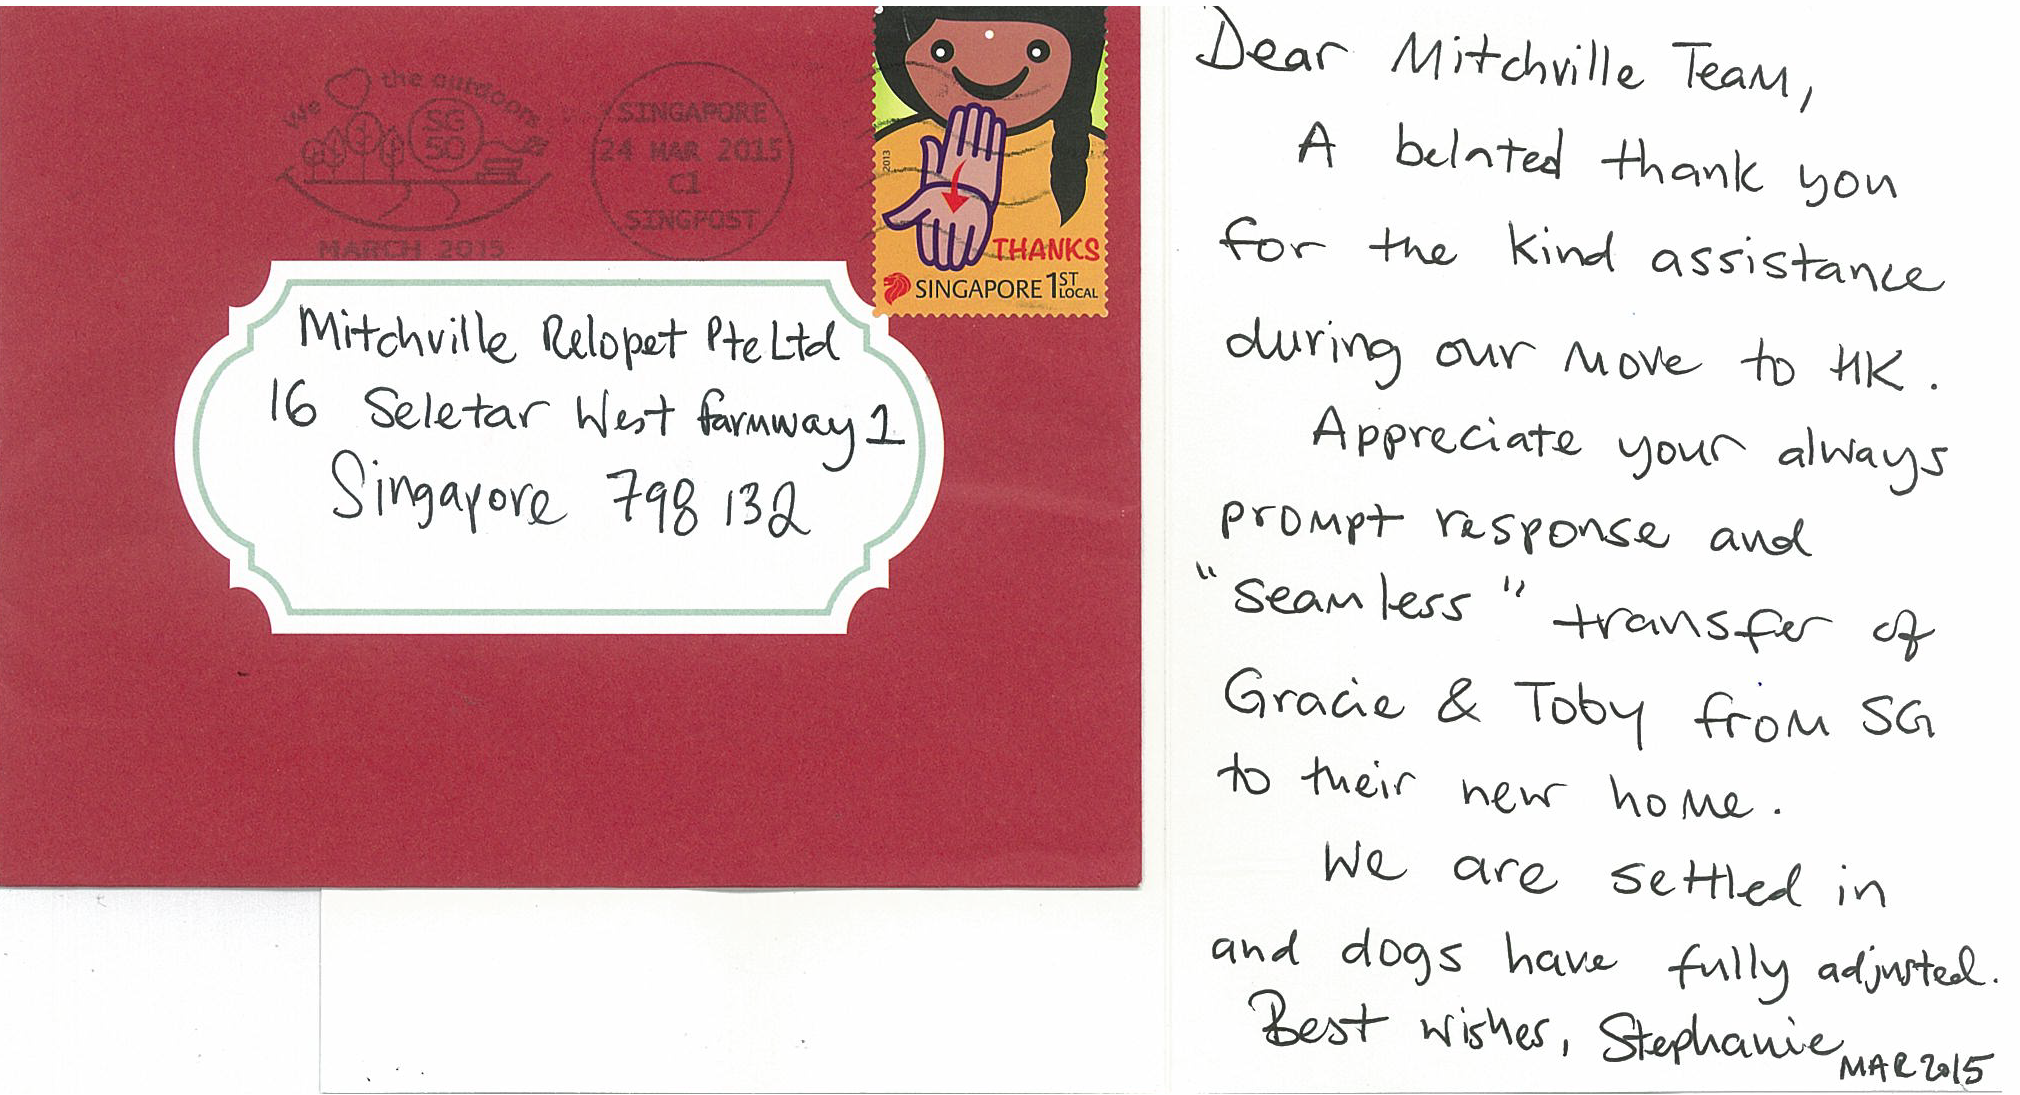 We the outdoors
SG
50
MARCH 2015
SINGAPORE
24 MAR 2015
C1
SINGPOST
2013
THANKS
SINGAPORE 1ST LOCAL
Mitchville Relopet Pte Ltd
16 Seletar West farmway 1
Singapore 798 132
Dear Mitchville Team,
A belated thank you
for the kind assistance
during our move to HK.
Appreciate your always
prompt response and
"seamless" transfer of
Gracie & Toby from SG
to their new home.
We are settled in
and dogs have fully adjusted.
Best wishes, Stephanie
MAR 2015